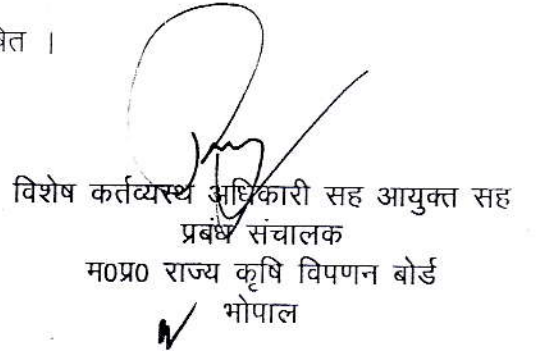 ।
विशेष कर्तव्यस्थ अधिकारी सह आयुक्त सह
प्रबंध संचालक
म0प्र0 राज्य कृषि विपणन बोर्ड
भोपाल